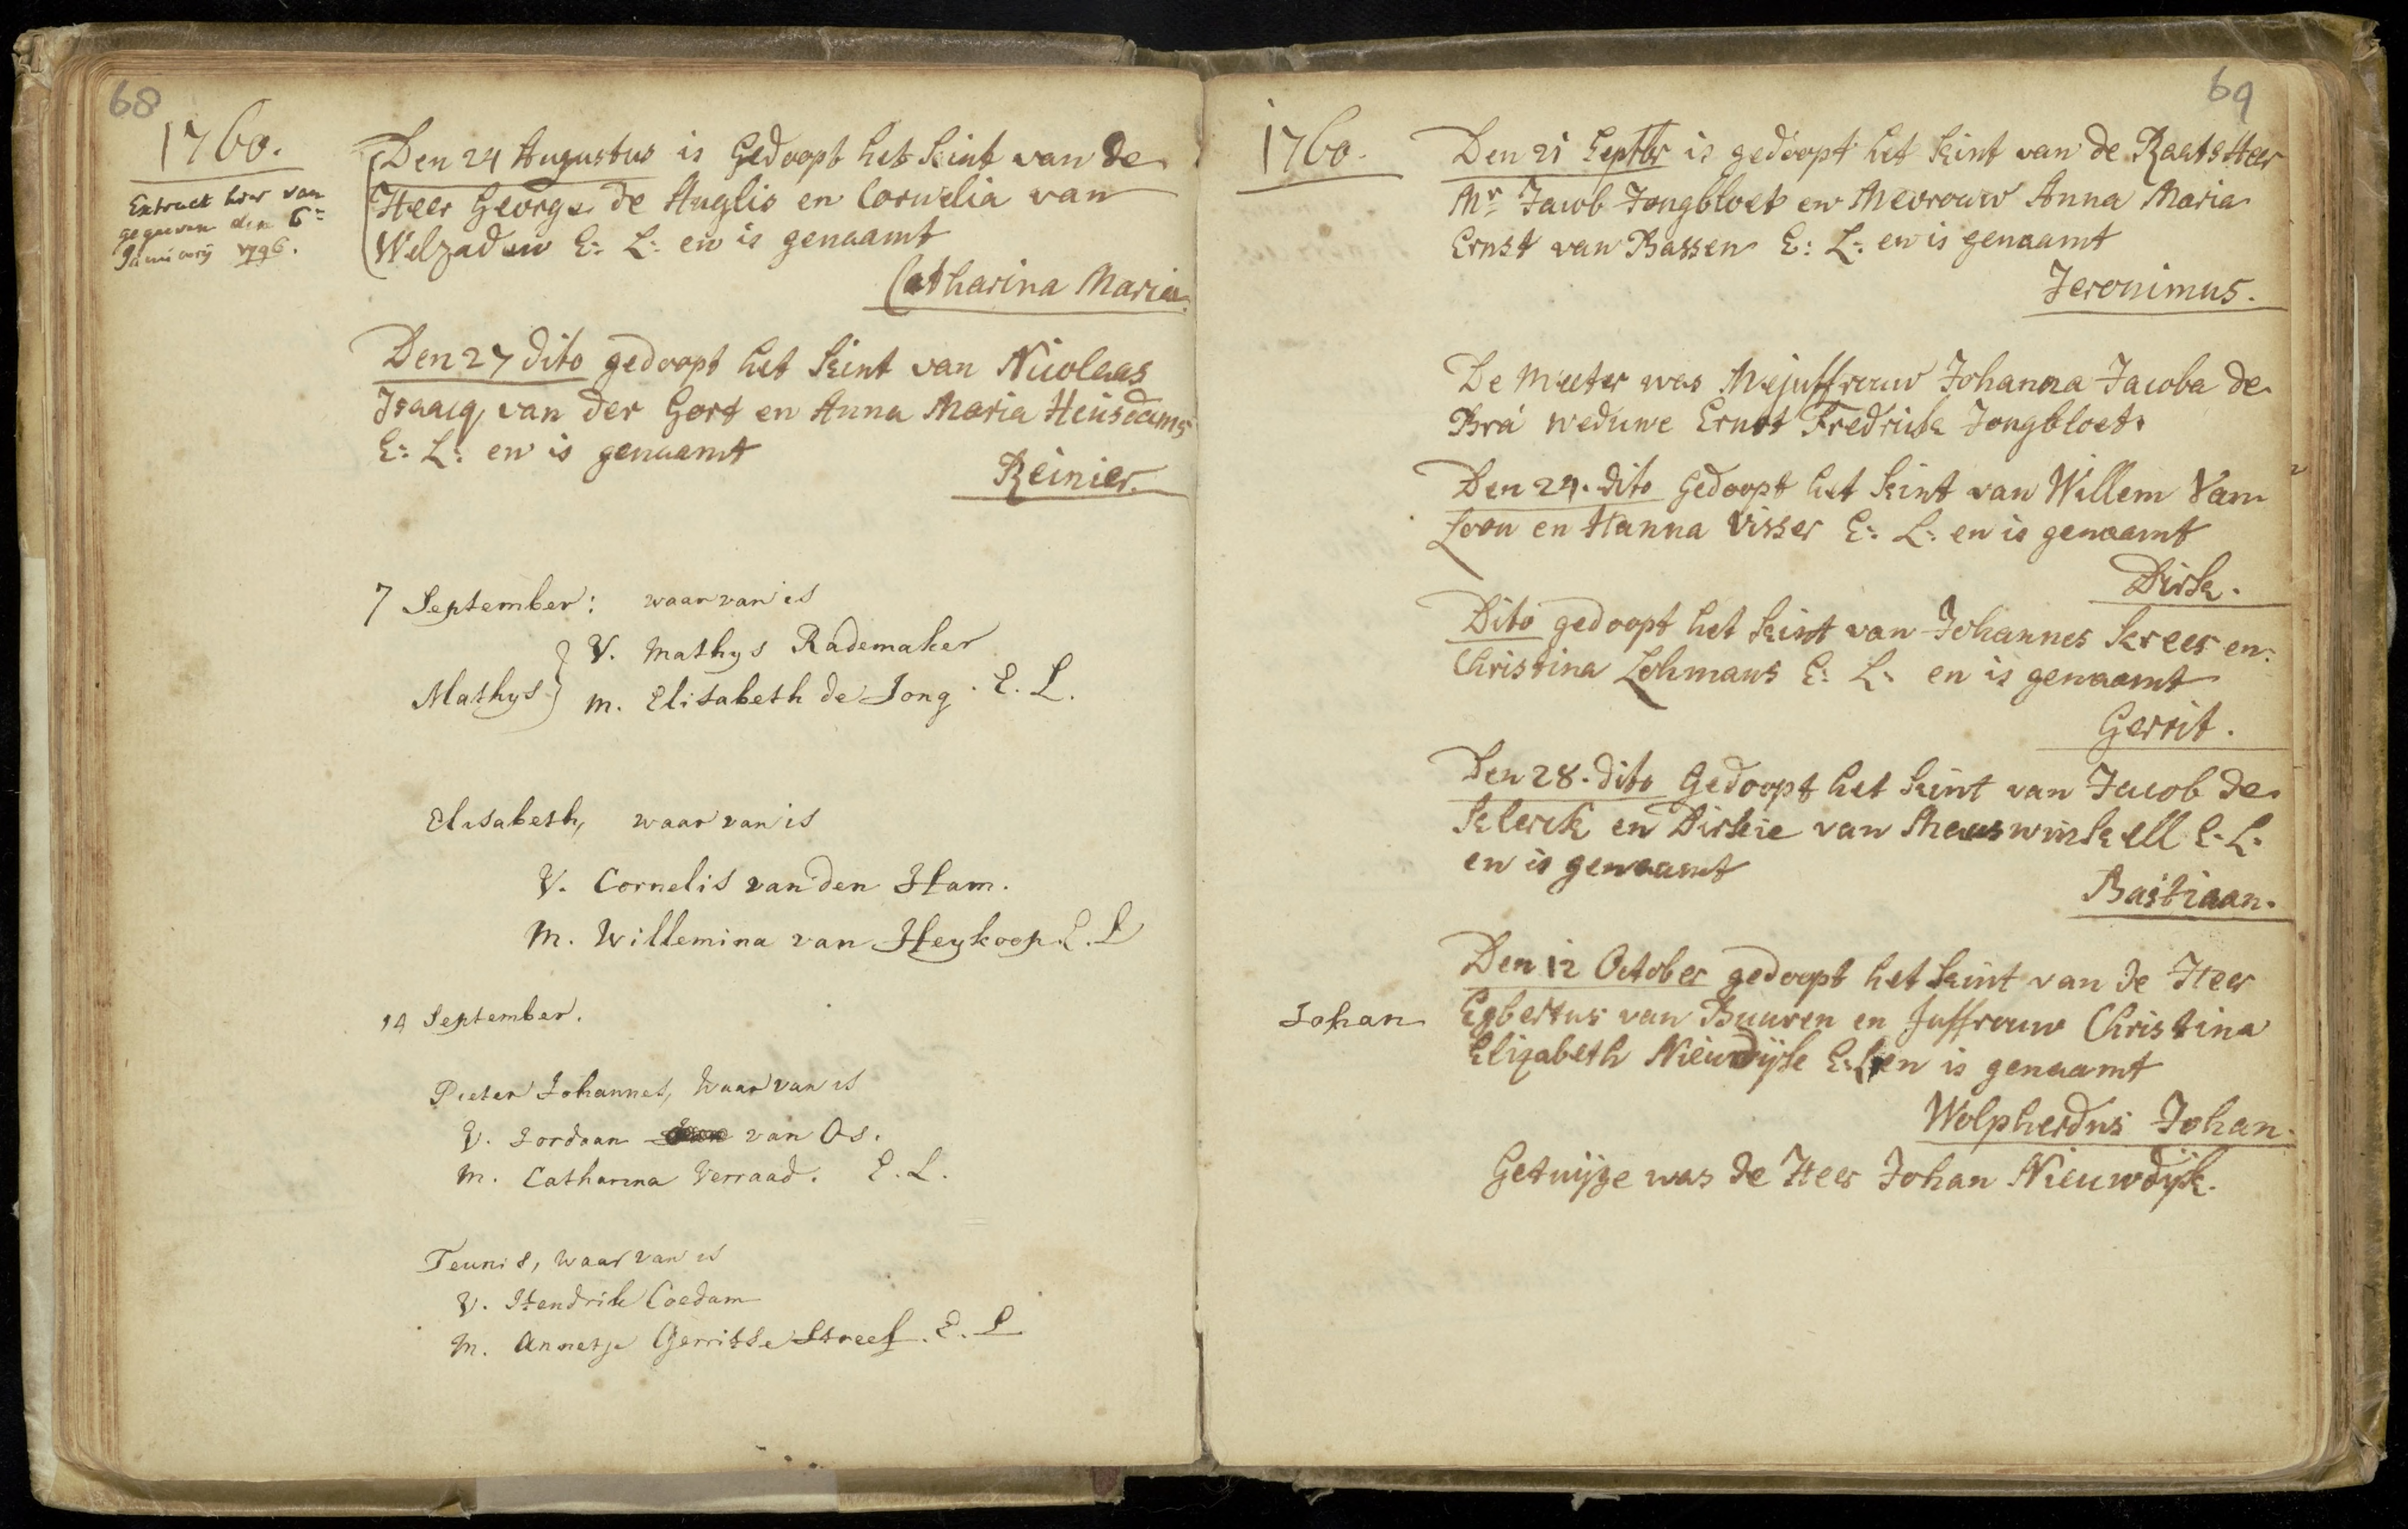 68
1760.
Extract hier van
gegeven den 6=
Januarij 1796.
Den 24 Augustus is Gedoopt het kint van de
Heer George de Anglis en Cornelia van
Welzaden E: L: en is genaamt
Catharina Maria.
Den 27 dito gedoopt het kint van Nicolaas
Isaacq van der Gort en Anna Maria Heusdams
E: L: en is genaamt
Reinier.
7 September: waar van is
V. Mathys Rademaker
Mathys } M. Elisabeth de Jong. E. L.
Elisabeth, waar van is
V. Cornelis van den Ham.
M. Willemina van Heykoop. E. L
14 September.
Pieter Johannes, waar van is
V. Jordaan van Os.
M. Catharina Verraad. E. L.
Teunis, waar van is
V. Hendrik Coedam
M. Annetje Gerritse Streef. E. L
69
1760.
Den 21 Septbr is gedoopt het kint van de Raats Heer
Mr Jacob Jongbloet en Mevrouw Anna Maria
Ernst van Bassen E: L: en is genaamt
Jeronimus.
De Meeter was Mejuffrouw Johanna Jacoba de
Bra weduwe Ernst Fredrick Jongbloet.
Den 24. dito Gedoopt het kint van Willem Van
Loon en Hanna Visser E: L: en is genaamt
Dirk.
Dito gedoopt het kint van Johannes Krees en
Christina Lohmans E: L: en is genaamt
Gerrit.
Den 28. dito Gedoopt het kint van Jacob de
Klerck en Dirkie van Meeuswinkell E. L.
en is genaamt
Bastiaan.
Den 12 October gedoopt het kint van de Heer
Johan Egbertus van Buuren en Juffrouw Christina
Elizabeth Nieuwdijk E: L: en is genaamt
Wolpherdus Johan.
Getuijge was de Heer Johan Nieuwdijk.